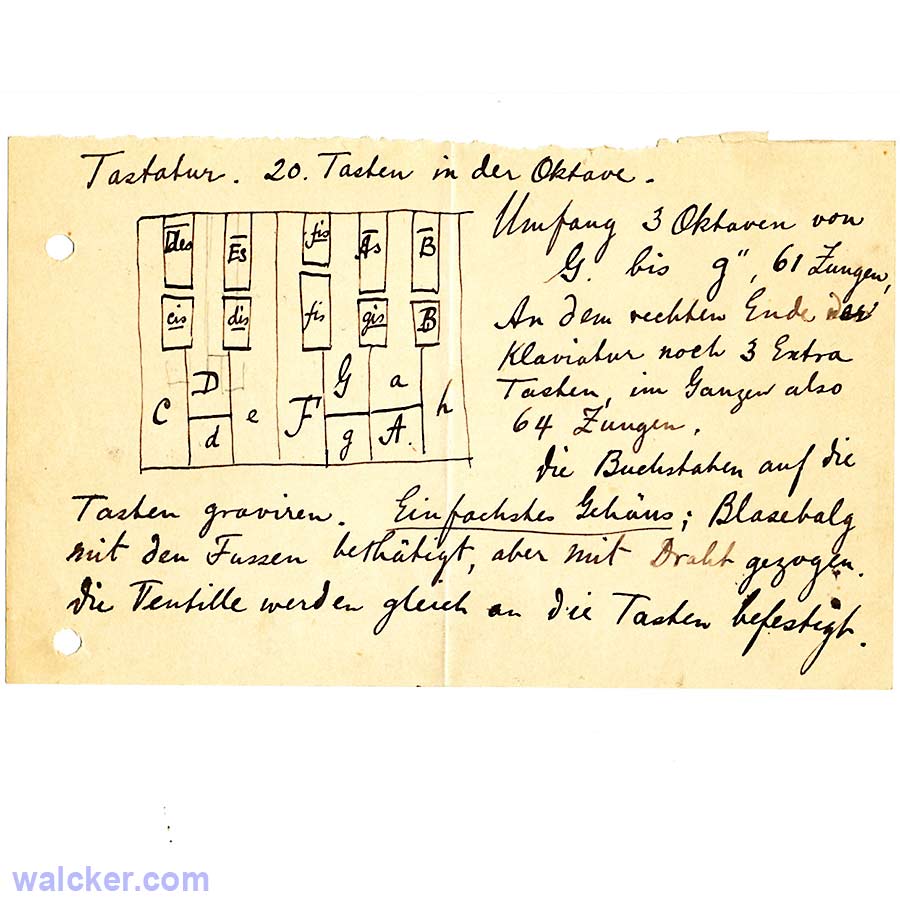 Tastatur. 20. Tasten in der Oktave.
Des Es fis As B
cis dis fis gis B
D G a
C e F h
d g A.
Umfang 3 Oktaven von
G. bis g", 61 Zungen,
An dem rechten Ende der
Klaviatur noch 3 Extra
Tasten, im Ganzen also
64 Zungen.
die Buchstaben auf die
Tasten graviren. Einfachstes Gehäus; Blasebalg
mit den Fussen bethätigt, aber mit Draht gezogen.
die Ventille werden gleich an die Tasten befestigt.
walcker.com